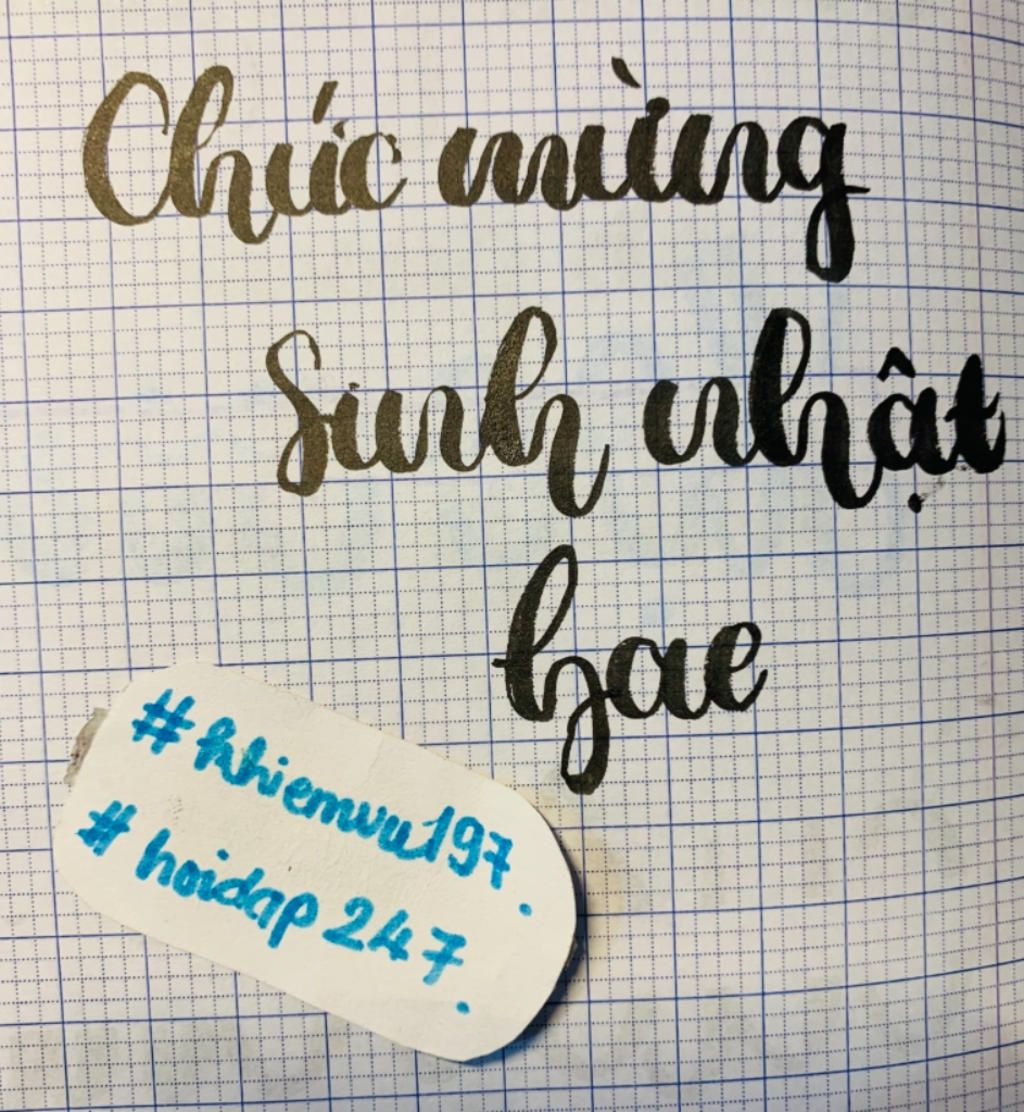 Chúc mừng
Sinh nhật
bae
#nhiemvu197.
#hoidap247.